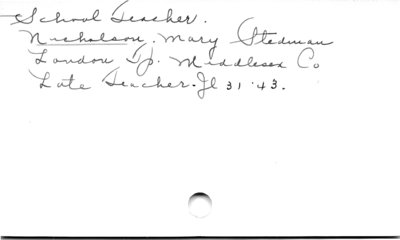 School Teacher.
Nicholson, Mary Stedman
London Tp. Middlesex Co
Late Teacher. Jl 31 '43.